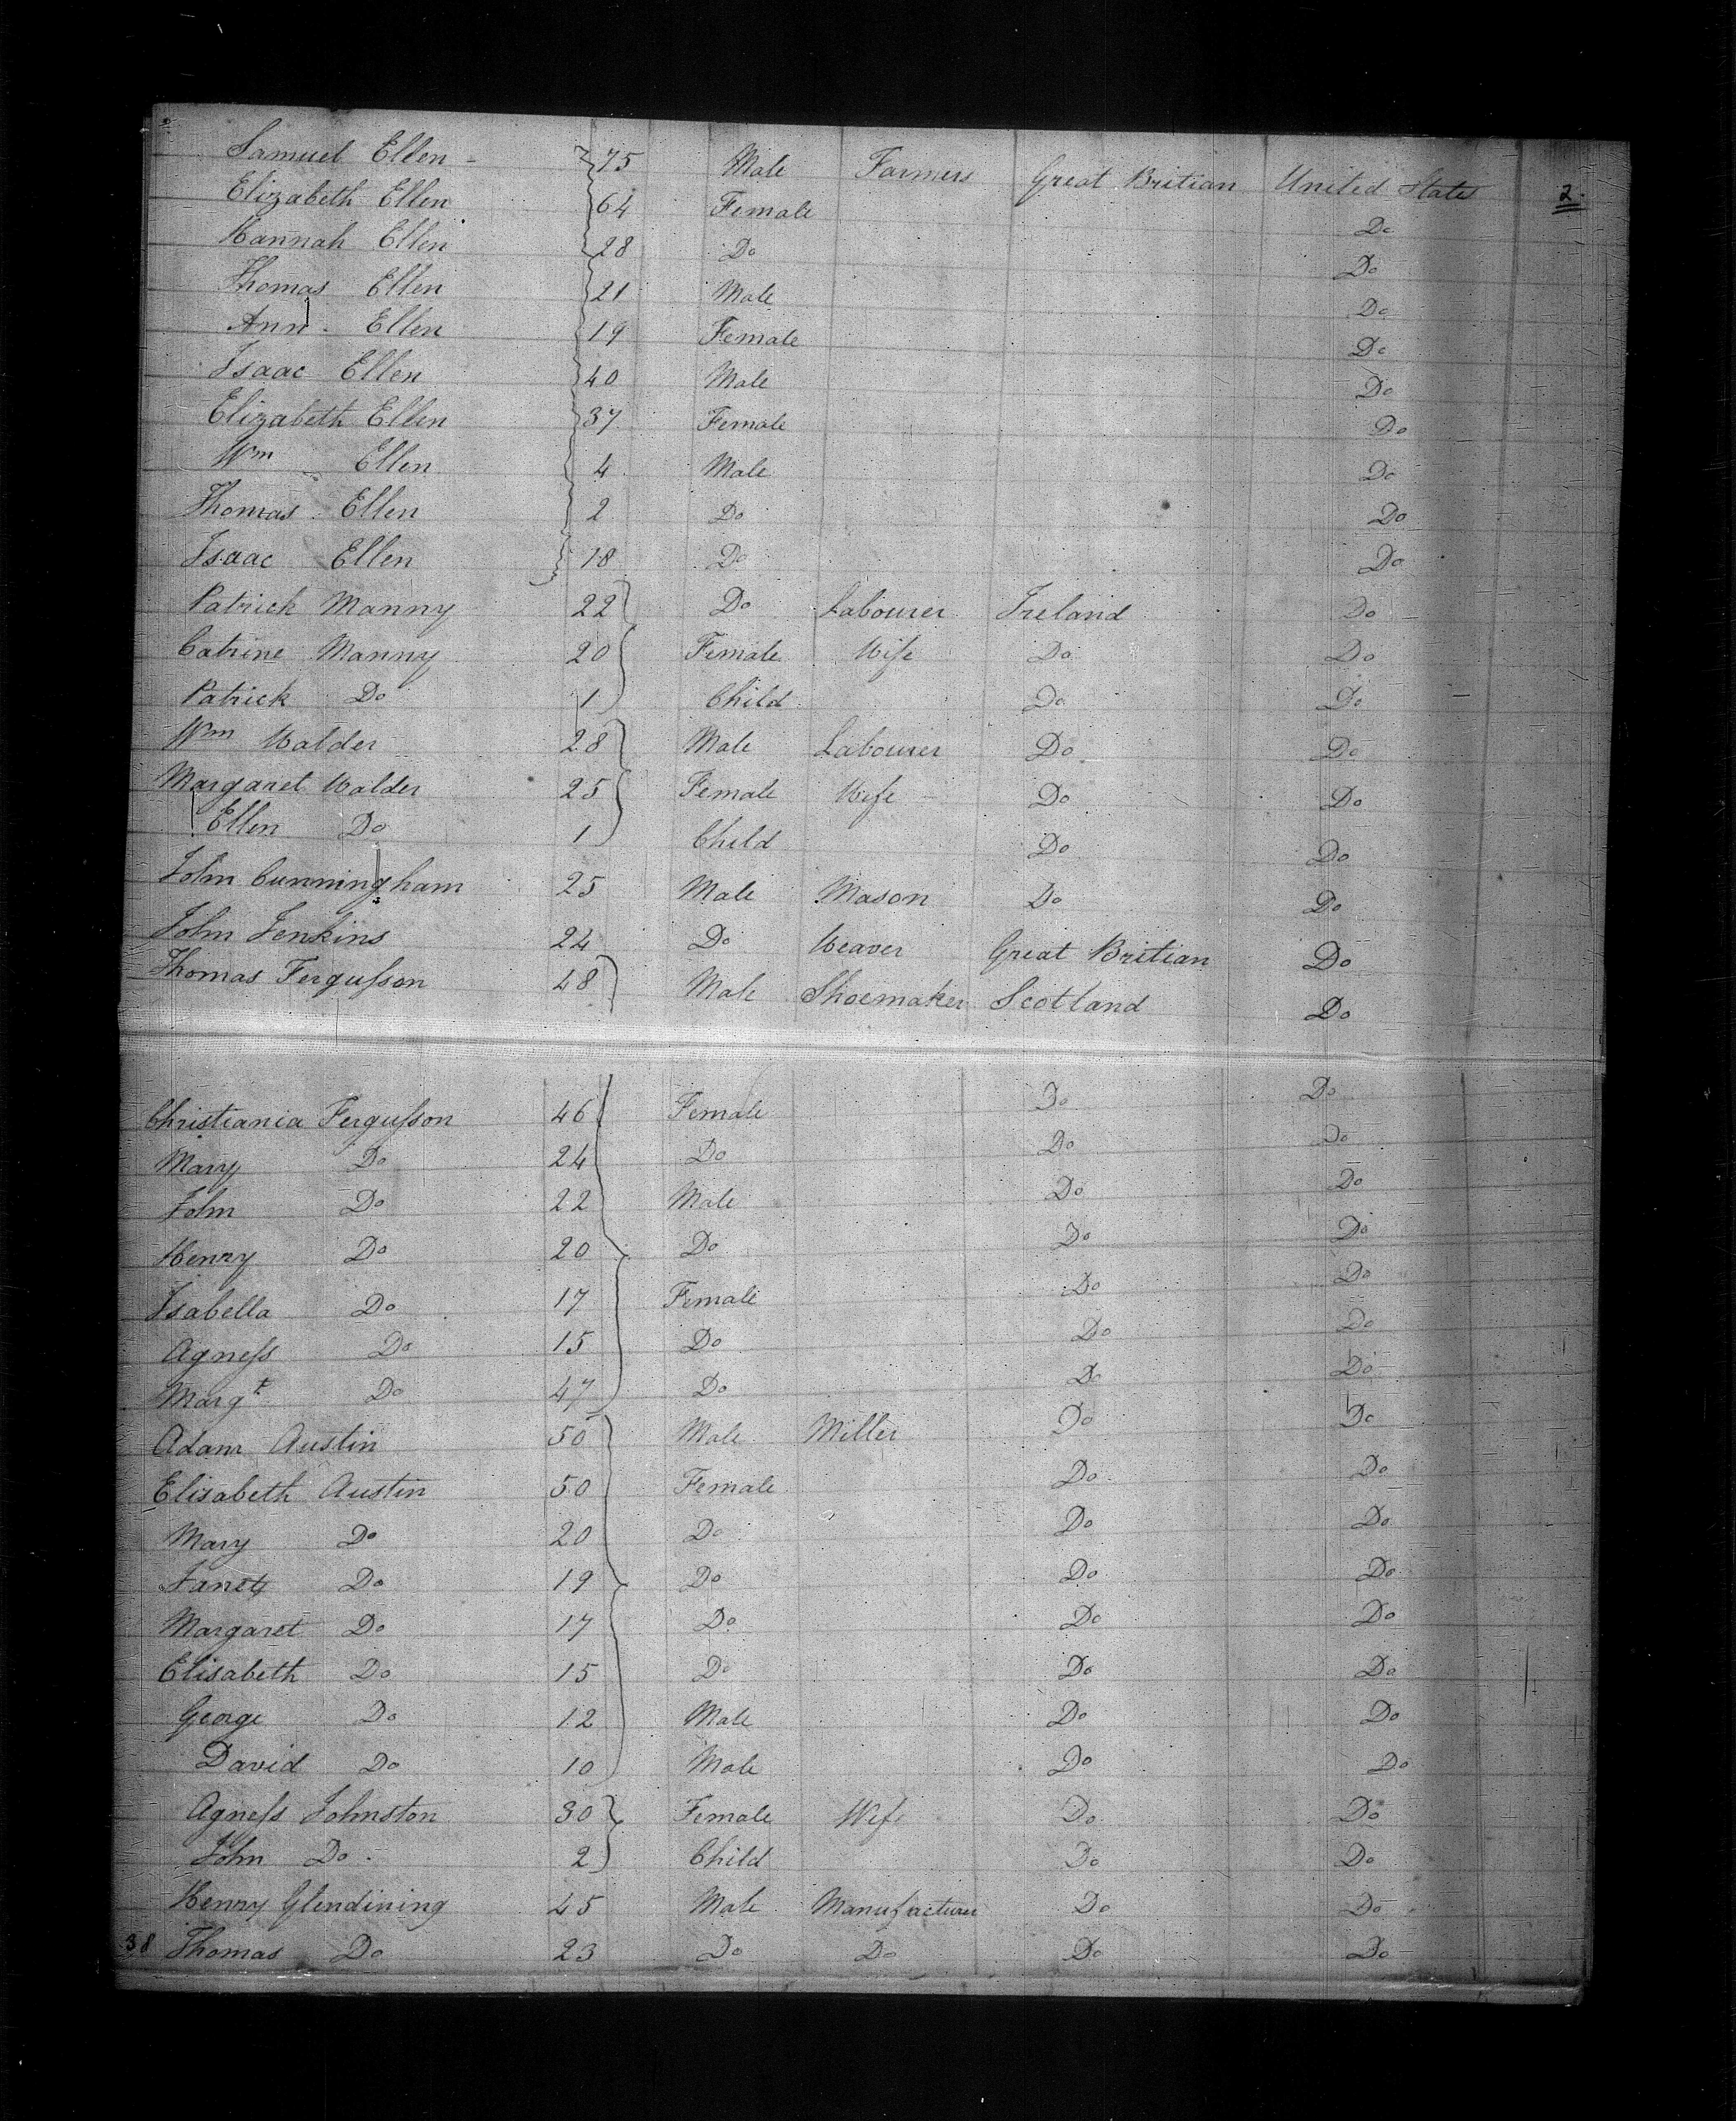 Samuel Ellen - 75 Male Farmers Great Britian United States 2
Elizabeth Ellen 64 Female Do
Hannah Ellen 28 Do Do
Thomas Ellen 21 Male Do
Ann Ellen 19 Female Do
Isaac Ellen 40 Male Do
Elizabeth Ellen 37 Female Do
Wm Ellen 4 Male Do
Thomas Ellen 2 Do Do
Isaac Ellen 18 Do Do
Patrick Manny 22 Do Labourer Ireland Do
Catrine Manny 20 Female Wife Do Do
Patrick Do 1 Child Do Do
Wm Walder 28 Male Labourer Do Do
Margaret Walder 25 Female Wife Do Do
Ellen Do 1 Child Do Do
John Cunningham 25 Male Mason Do Do
John Jenkins 24 Do Weaver Great Britian Do
Thomas Fergusson 48 Male Shoemaker Scotland Do
Christiania Fergusson 46 Female Do Do
Mary Do 24 Do Do Do
John Do 22 Male Do Do
Henry Do 20 Do Do Do
Isabella Do 17 Female Do Do
Agness Do 15 Do Do Do
Margt Do 47 Do Do Do
Adam Austin 50 Male Miller Do Do
Elisabeth Austin 50 Female Do Do
Mary Do 20 Do Do Do
Do 19 Do Do Do
Margaret Do 17 Do Do Do
Elisabeth Do 15 Do Do Do
George Do 12 Male Do Do
David Do 10 Male Do Do
Agness Johnston 30 Female Wife Do Do
John Do 2 Child Do Do
Henry Glendining 45 Male Manufacturer Do Do
38 Thomas Do 23 Do Do Do Do